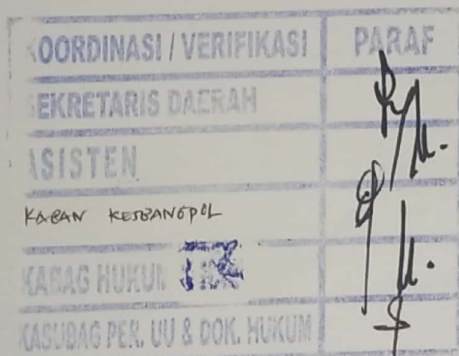 KOORDINASI / VERIFIKASI PARAF
SEKRETARIS DAERAH
ASISTEN
KABAN KESBANGPOL
KABAG HUKUM
KASUBAG PER. UU & DOK. HUKUM